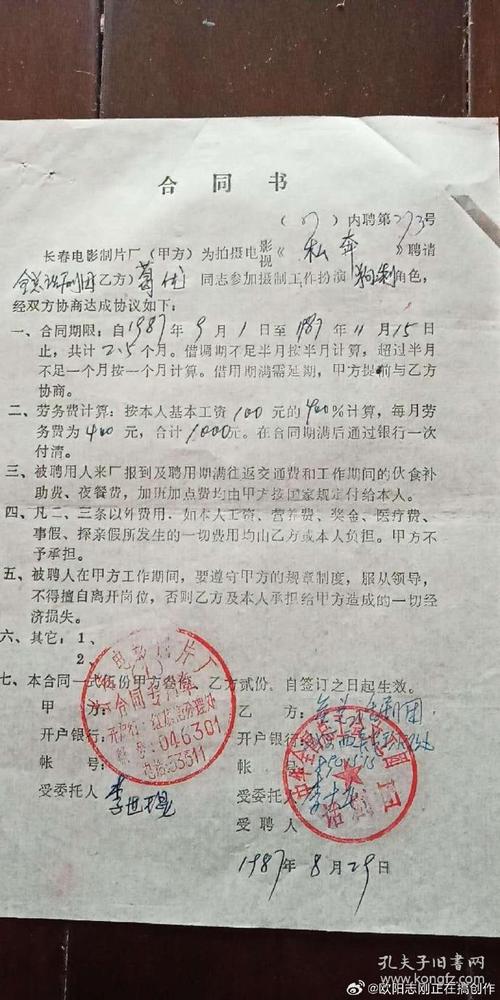 合同书
(87)内聘第273号
长春电影制片厂(甲方)为拍摄电影视《私奔》聘请
全总话剧团(乙方)葛优 同志参加摄制工作扮演 角色,
经双方协商达成协议如下:
一、合同期限:自1987年9月1日至1987年11月15日
止,共计2.5个月。借调期不足半月按半月计算,超过半月
不足一个月按一个月计算。借用期满需延期,甲方提前与乙方
协商。
二、劳务费计算:按本人基本工资100元的400%计算,每月劳
务费为400元,合计1000元。在合同期满后通过银行一次
付清。
三、被聘用人来厂报到及聘用期满往返交通费和工作期间的伙食补
助费、夜餐费,加班加点费均由甲方按国家规定付给本人。
四、凡二、三条以外费用,如本人工资、营养费、奖金、医疗费、
事假、探亲假所发生的一切费用均由乙方或本人负担。甲方不
予承担。
五、被聘人在甲方工作期间,要遵守甲方的规章制度,服从领导,
不得擅自离开岗位,否则乙方及本人承担给甲方造成的一切经
济损失。
六、其它:1、
2、
七、本合同一式伍份甲方叁份,乙方贰份,自签订之日起生效。
甲方: 乙方:全总话剧团
开户银行: 开户银行:
帐号: 帐号:
受委托人 受委托人
受聘人
长春电影制片厂
合同专用章
046301
电话:53511
话剧团
1987年8月29日
孔夫子旧书网
@欧阳志刚正在搞创作